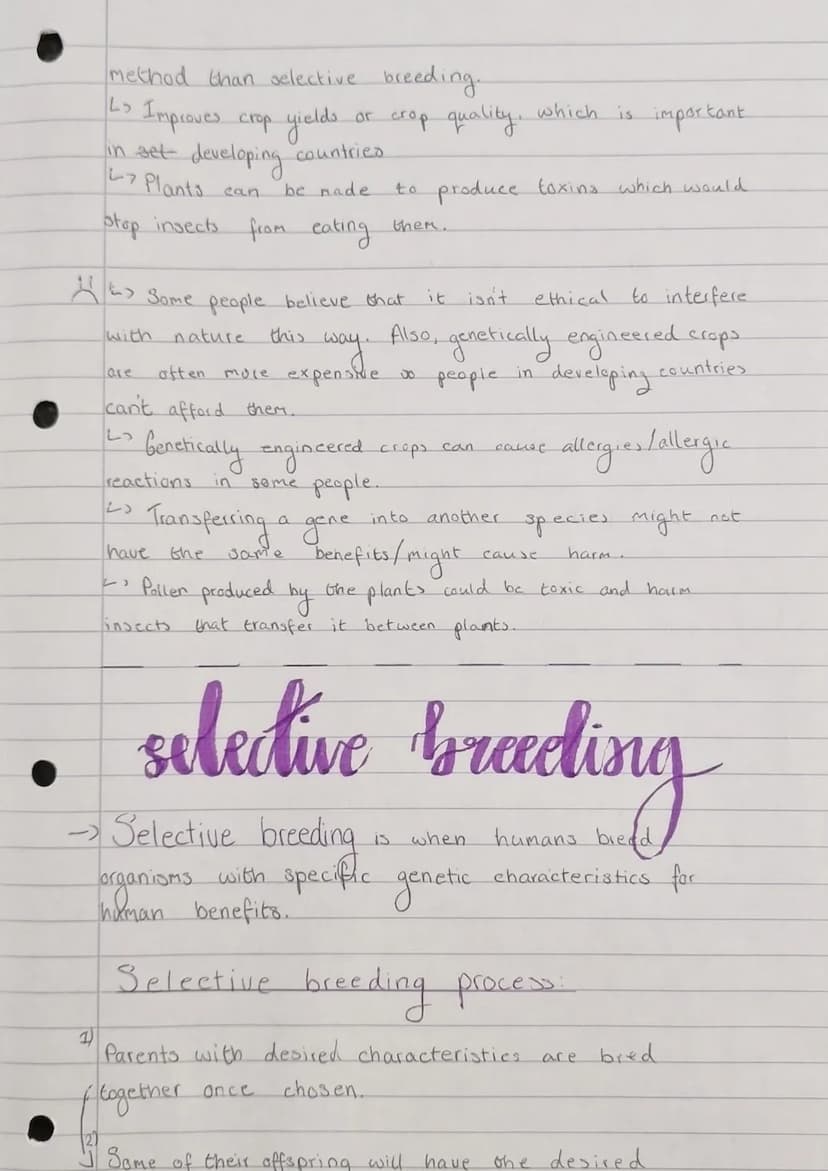 method than selective breeding.
↳ Improves crop yields or crop quality, which is important
in set developing countries
↳ Plants can be made to produce toxins which would
stop insects from eating them.
↳ Some people believe that it isn't ethical to interfere
with nature this way. Also, genetically engineered crops
are often more expensive so people in developing countries
can't afford them.
↳ Genetically engineered crops can cause allergies/allergic
reactions in some people.
↳ Transferring a gene into another species might not
have the same benefits/might cause harm.
↳ Pollen produced by the plants could be toxic and harm
insects that transfer it between plants.
selective breeding
→ Selective breeding is when humans breed
organisms with specific genetic characteristics for
human benefits.
Selective breeding process:
1)
Parents with desired characteristics are bred
together once chosen.
2)
Some of their offspring will have the desired